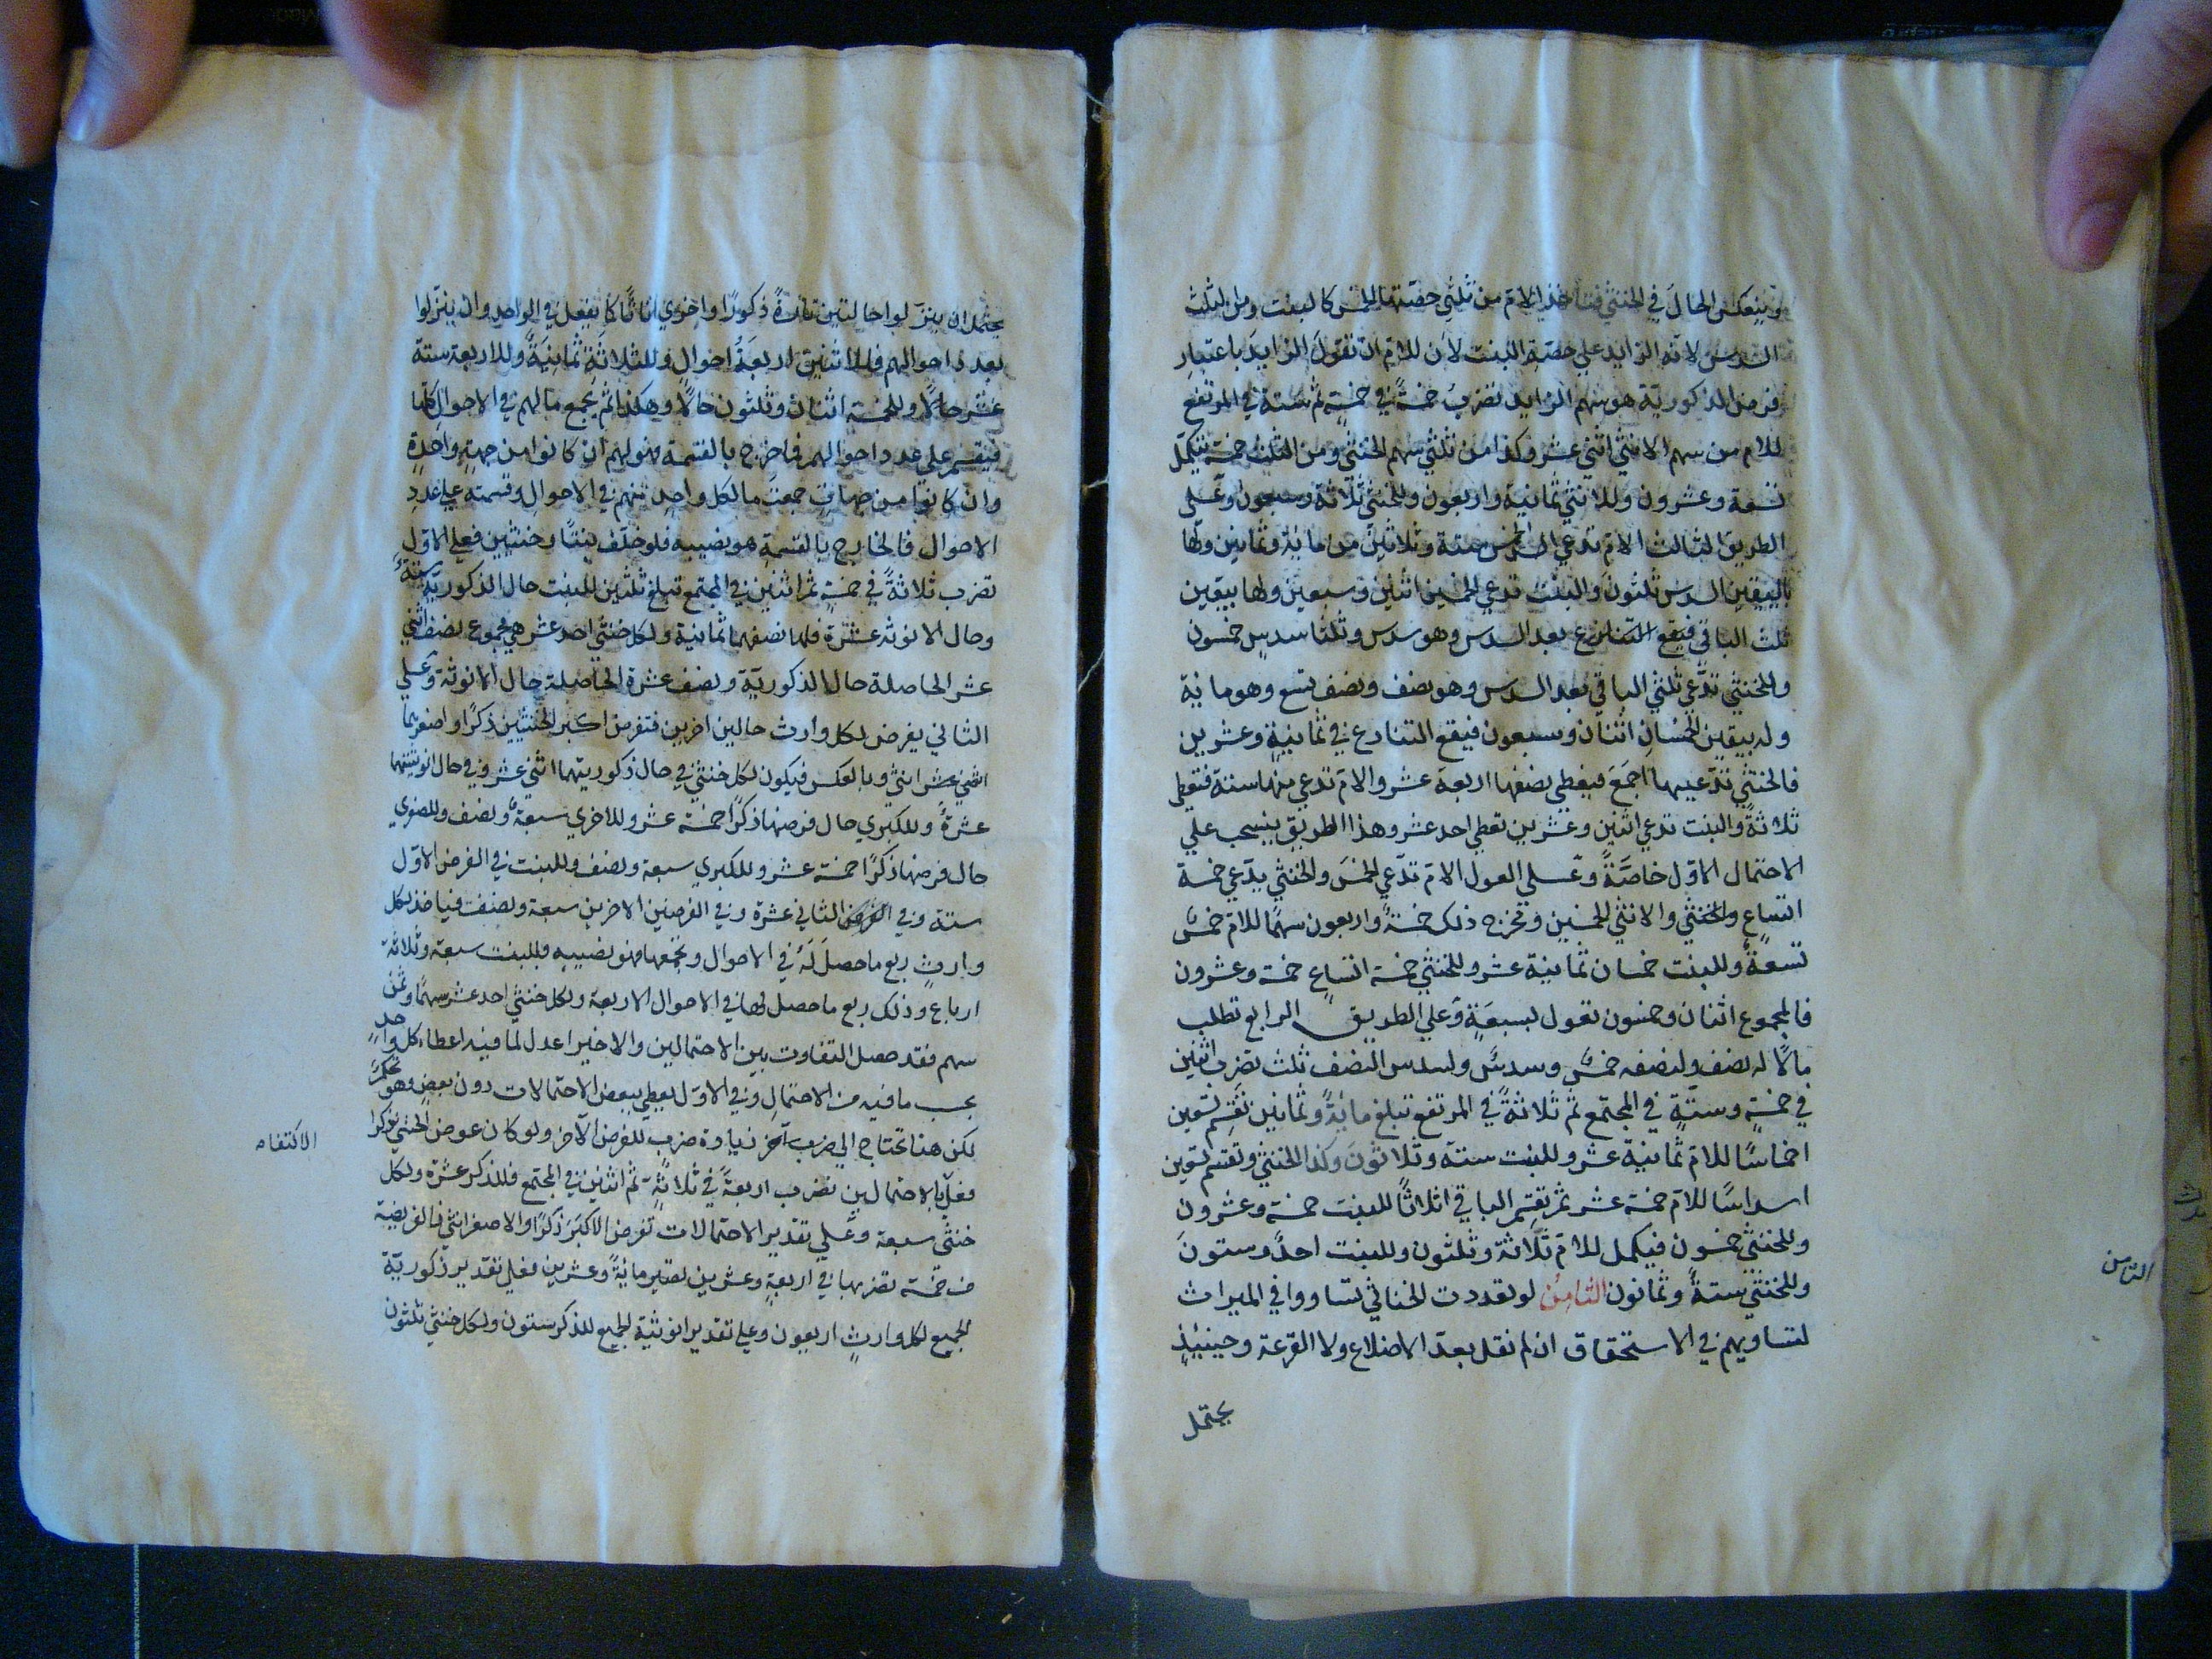 وينعكس الحال في الخنثى فتأخذ الام من ثلثي حصتها الخمس كالبنت ومن الثلث
السدس لانه الزايد علي حصة البنت لان للام ان تقول الزايد باعتبار
فرض الذكوريّة هو سهم الزايد تضرب خمسةً في خمسةٍ ثم ستة في المرتفع
للام من سهم الانثي اثني عشر وكذا من ثلثي سهم الخنثي ومن الثلث خمسة فيكمل
تسعة وعشرون وللانثي ثمانية واربعون وللخنثي ثلاثة وسبعون وعلي
الطريق الثالث الام تدعي الخمس ستة وثلاثين من مائة وثمانين ولها
باليقين السدس ثلثون والبنت تدعي الخمسين اثنين وسبعين ولها بيقين
ثلث الباقي فيقع التنازع بعد السدس وهو سدس وثلثا سدس خمسون
وللخنثي تدّعي ثلثي الباقي بعد السدس وهو نصف ونصف تسع وهو ماية
وله بيقين الخمسان اثنان وسبعون فيقع التنازع في ثمانيةٍ وعشرين
فالخنثي تدّعيها اجمَعَ فيعطي نصفها اربعة عشر والام تدعي منها ستة فتعطي
ثلاثةً والبنت تدعي اثنين وعشرين تعطي احد عشر وهذا الطريق ينسحب علي
الاحتمال الاوّل خاصّةً وعلي العول الام تدّعي الخمس والخنثي يدّعي خمسة
اتساعٍ والخنثي والانثي الخمسين ومخرج ذلك خمسةً واربعون سهمًا للام خمسٌ
تسعةٌ وللبنت خمسان ثمانية عشر وللخنثي خمسة اتساعٍ خمسة وعشرون
فالمجموع اثنان وخمسون تعول بسبعَةٍ وعلي الطريق الرابع تطلب
مالًا له نصف ولنصفه خمسٌ وسدسٌ ولسدس النصف ثلث تضرب اثنين
في خمسةٍ وستّةٍ في المجتمع ثم ثلاثةً في المرتفع تبلغ مائةً وثمانين تقسم تسعين
اخماسًا للام ثمانية عشر وللبنت ستة وثلاثون وكذا الخنثي وتقسم تسعين
اسداسًا للام خمسة عشر ثم تقسم الباقي اثلاثًا للبنت خمسة وعشرون
وللخنثي خمسون فيكمل للام ثلاثة وثلثون وللبنت احدٌ وستونَ
وللخنثي ستةٌ وثمانون الثامن لو تعددت الخناثي تساووا في الميراث
لتساويهم في الاستحقاق ان لم نقل بعدّ الاضلاع ولا القرعة وحينئذٍ
يحتمل
الثامن
يحتمل ان ينزلوا حالتين تارةً ذكورًا واخري اناثًا كما يفعل في الواحد وان ينزلوا
بعدد احوالهم فللاثنين اربعَةُ احوالٍ وللثلاثةِ ثمانيَةٌ وللاربعة ستة
عشر حالًا وللخمسة اثنان وثلثون حالًا وهكذا ثم يجمع ما لهم في الاحوال كلها
فيقسم علي عدد احوالهم فما خرج بالقسمة فهو لهم ان كانوا من جهةٍ واحدةٍ
وان كانوا من جهاتٍ جمعت ما لكل واحدٍ منهم في الاحوالِ وقسمته علي عددِ
الاحوال فالخارج بالقسمةِ هو نصيبه فلو خلّف بنتًا وخنثيين فعلي الاوّلِ
تضرب ثلاثةً في خمسةٍ ثم اثنين في المجتمع تبلغ ثلثين للبنت حال الذكوريّة ستةٌ
وحال الانوثة عشرة فلها نصفهما ثمانية ولكل خنثي احد عشر هي مجموع نصف اثني
عشر الحاصلة حال الذكوريّة ونصف عشرة الحاصلة حال الانوثة وعلي
الثاني يفرض لكل وارث حالين اخرين فتفرض اكبر الخنثيين ذكرًا واصغرهما
انثي وبالعكس فيكون لكل خنثي في حال ذكوريتهما اثني عشر وفي حال انوثيتهما
عشرةٌ وللكبري حال فرضها ذكرًا خمسة عشر وللاخري سبعةٌ ونصف وللصغري
حال فرضها ذكرًا خمسة عشر وللكبري سبعة ونصف وللبنت في الفرض الاوّل
ستة وفي الفرض الثاني عشرة وفي الفرضين الاخرين سبعة ونصف فياخذ لكل
وارثٍ ربع ما حصل له في الاحوال وتجمعها فهو نصيبه فللبنت سبعة وثلاثة
ارباع وذلك ربع ما حصل لها في الاحوال الاربعة ولكل خنثي احد عشر سهمًا وثمن
سهم فقد حصل التفاوت بين الاحتمالين والاخير اعدل لما فيه اعطاء كل واحدٍ
بحسب ما فيه من الاحتمالِ وفي الاوّل يعطي ببعض الاحتمالات دون بعضٍ وهو تحكّم
لكن هذا تحتاج الي ضرب آخر زيادة ضرب للفرض الآخر ولو كان عوض الخنثي ذكرا
فعلي الاحتمالين تضرب اربعةً في ثلاثةٍ ثم اثنين في المجتمع فللذكر عشرة ولكل
خنثي سبعة وعلي تقدير الاحتمالات تفرض الاكبر ذكرًا والاصغر انثي فالفريضة
من خمسة تضربها في اربعةٍ وعشرين تصير مائةً وعشرين فعلي تقدير ذكوريّة
الجميع لكل وارثٍ اربعون وعلي تقدير انوثية الجميع للذكر ستون ولكل خنثي ثلثون